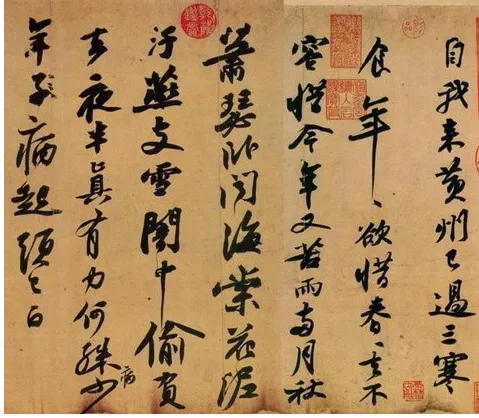 自我来黄州已過三寒
食年〻欲惜春〻去不
容惜今年又苦雨兩月秋
蕭瑟卧聞海棠花泥
汙燕支雪闇中偷負
去夜半真有力何殊少
病
年子病起頭已白